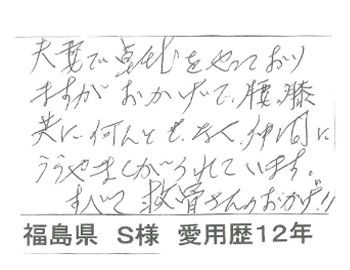 夫妻で卓球をやっており
ますが おかげで、腰、膝
共に、何んともなく、仲間に
うらやましがられています。
すべて 救骨さんのおかげ!!
福島県 S様 愛用歴12年